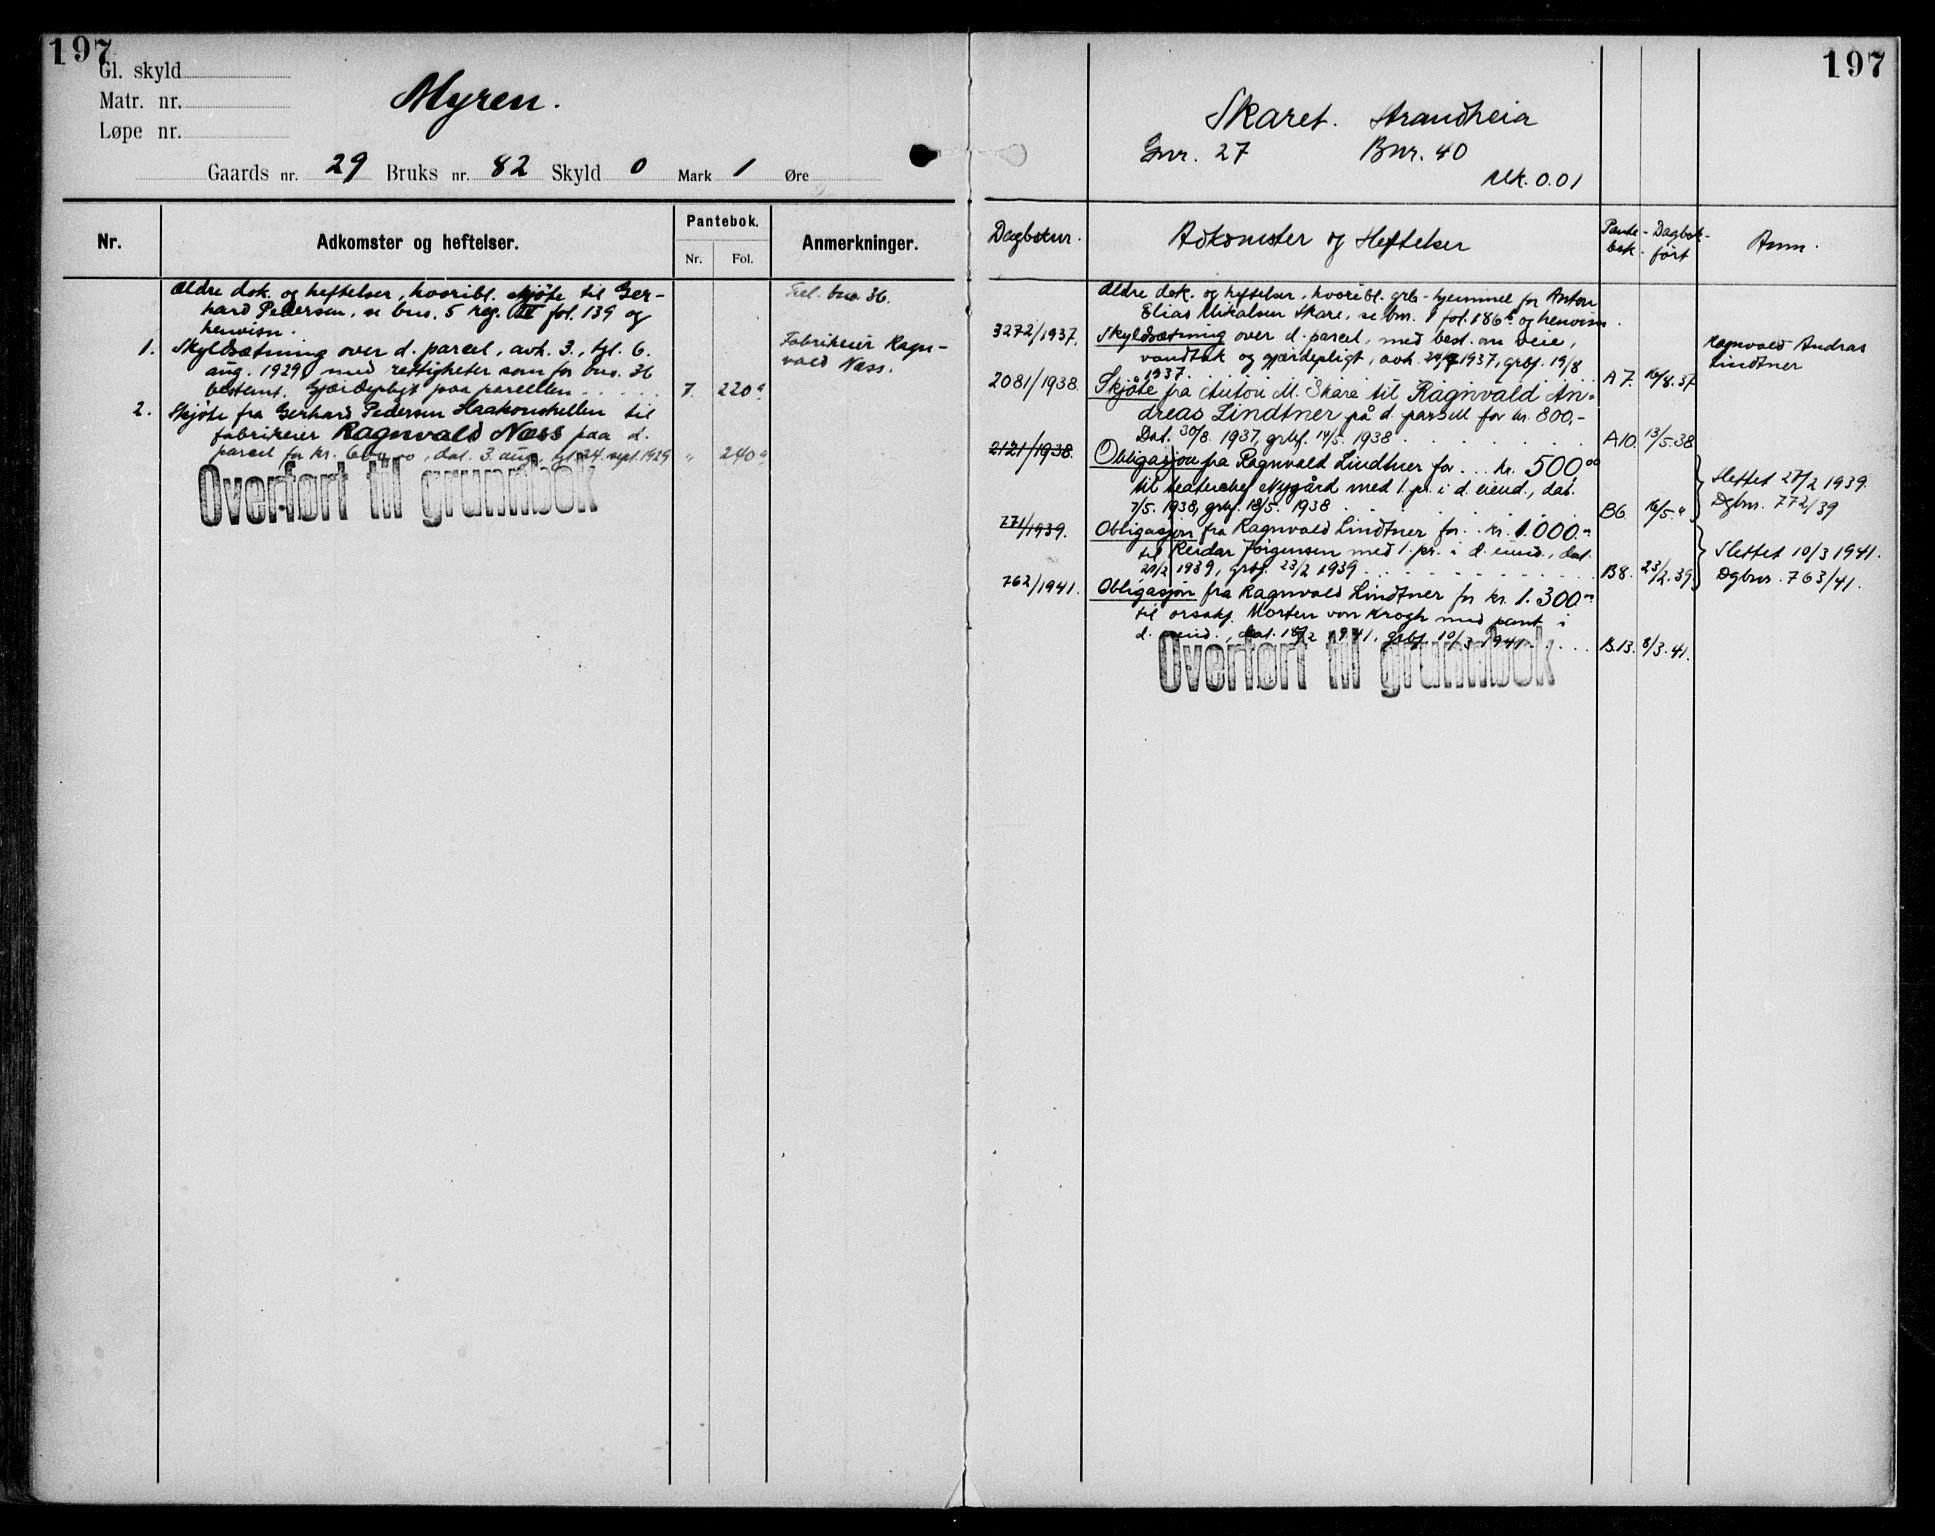 197
Gl. skyld
Matr. nr.
Løpe nr.
Myren.
Gaards nr. 29 Bruks nr. 82 Skyld 0 Mark 1 Øre
Nr.
Adkomster og heftelser.
Pantebok.
Nr. Fol.
Anmerkninger.
Ældre dok. og heftelser, hvoribl. skjøte til Ger-
hard Pedersen, se bnr. 5 reg. III fol. 139 og
henvisn.
1. Skyldsætning over d. parcel, avh. 3., tgl. 6.
aug. 1929, med rettigheter som for bnr. 36
bestemt. Gjærdepligt paa parcellen . . . . . 7. 220ª
2. Skjøte fra Gerhard Pedersen Haakonshellen til
fabrikeier Ragnvald Næss paa d.
parcel for kr. 600,00, dat. 3. aug., tgl. 24. sept. 1929 " 240ª
bnr. 36.
Fabrikeier Ragn-
vald Næss.
Overført til grunnbok
197
Skaret. Strandheia
Gnr. 27 Bnr. 40
Mk. 0.01
Dagboknr.
Adkomster og Heftelser
Pante-
bok
Dagbok-
ført
Anm.
Ældre dok. og heftelser, hvoribl. grb-hjemmel for Anton
Elias Mikalsen Skare, se bnr. 1 fol. 186b og henvisn.
3272/1937. Skyldsætning over d. parcel, med best. om veie,
vandtak og gjærdepligt, avh. 24/7 1937, grbf. 19/8
1937. A7. 16/8.37
Ragnvald Andreas
Lindtner
2081/1938. Skjøte fra Anton M. Skare til Ragnvald An-
dreas Lindtner på d. parsell for kr. 800,-
Dat. 30/8 1937, grbf. 14/5 1938 . . . A10. 13/5.38
2121/1938. Obligasjon fra Ragnvald Lindtner for . . kr. 500⁰⁰
til teaterchef Nygård med 1. pr. i d. eiend., dat.
7/5. 1938, grbf. 18/5. 1938 . . . B6. 16/5. "
Slettet 27/2 1939.
Dgbnr. 772/39
771/1939. Obligasjon fra Ragnvald Lindtner for . . kr. 1.000.-
til Reidar Jørgensen med 1. pr. i d. eiend., dat.
21/2 1939, grbf. 23/2 1939 . . . B8. 23/2.39
Slettet 10/3 1941.
Dgbnr. 763/41.
762/1941. Obligasjon fra Ragnvald Lindtner for kr. 1.300.-
til orsakf. Morten von Krogh med pant i
d. eiend., dat. 18/2 1941, grbf. 10/3 1941 . . . B.13. 8/3.41.
Overført til grunnbok